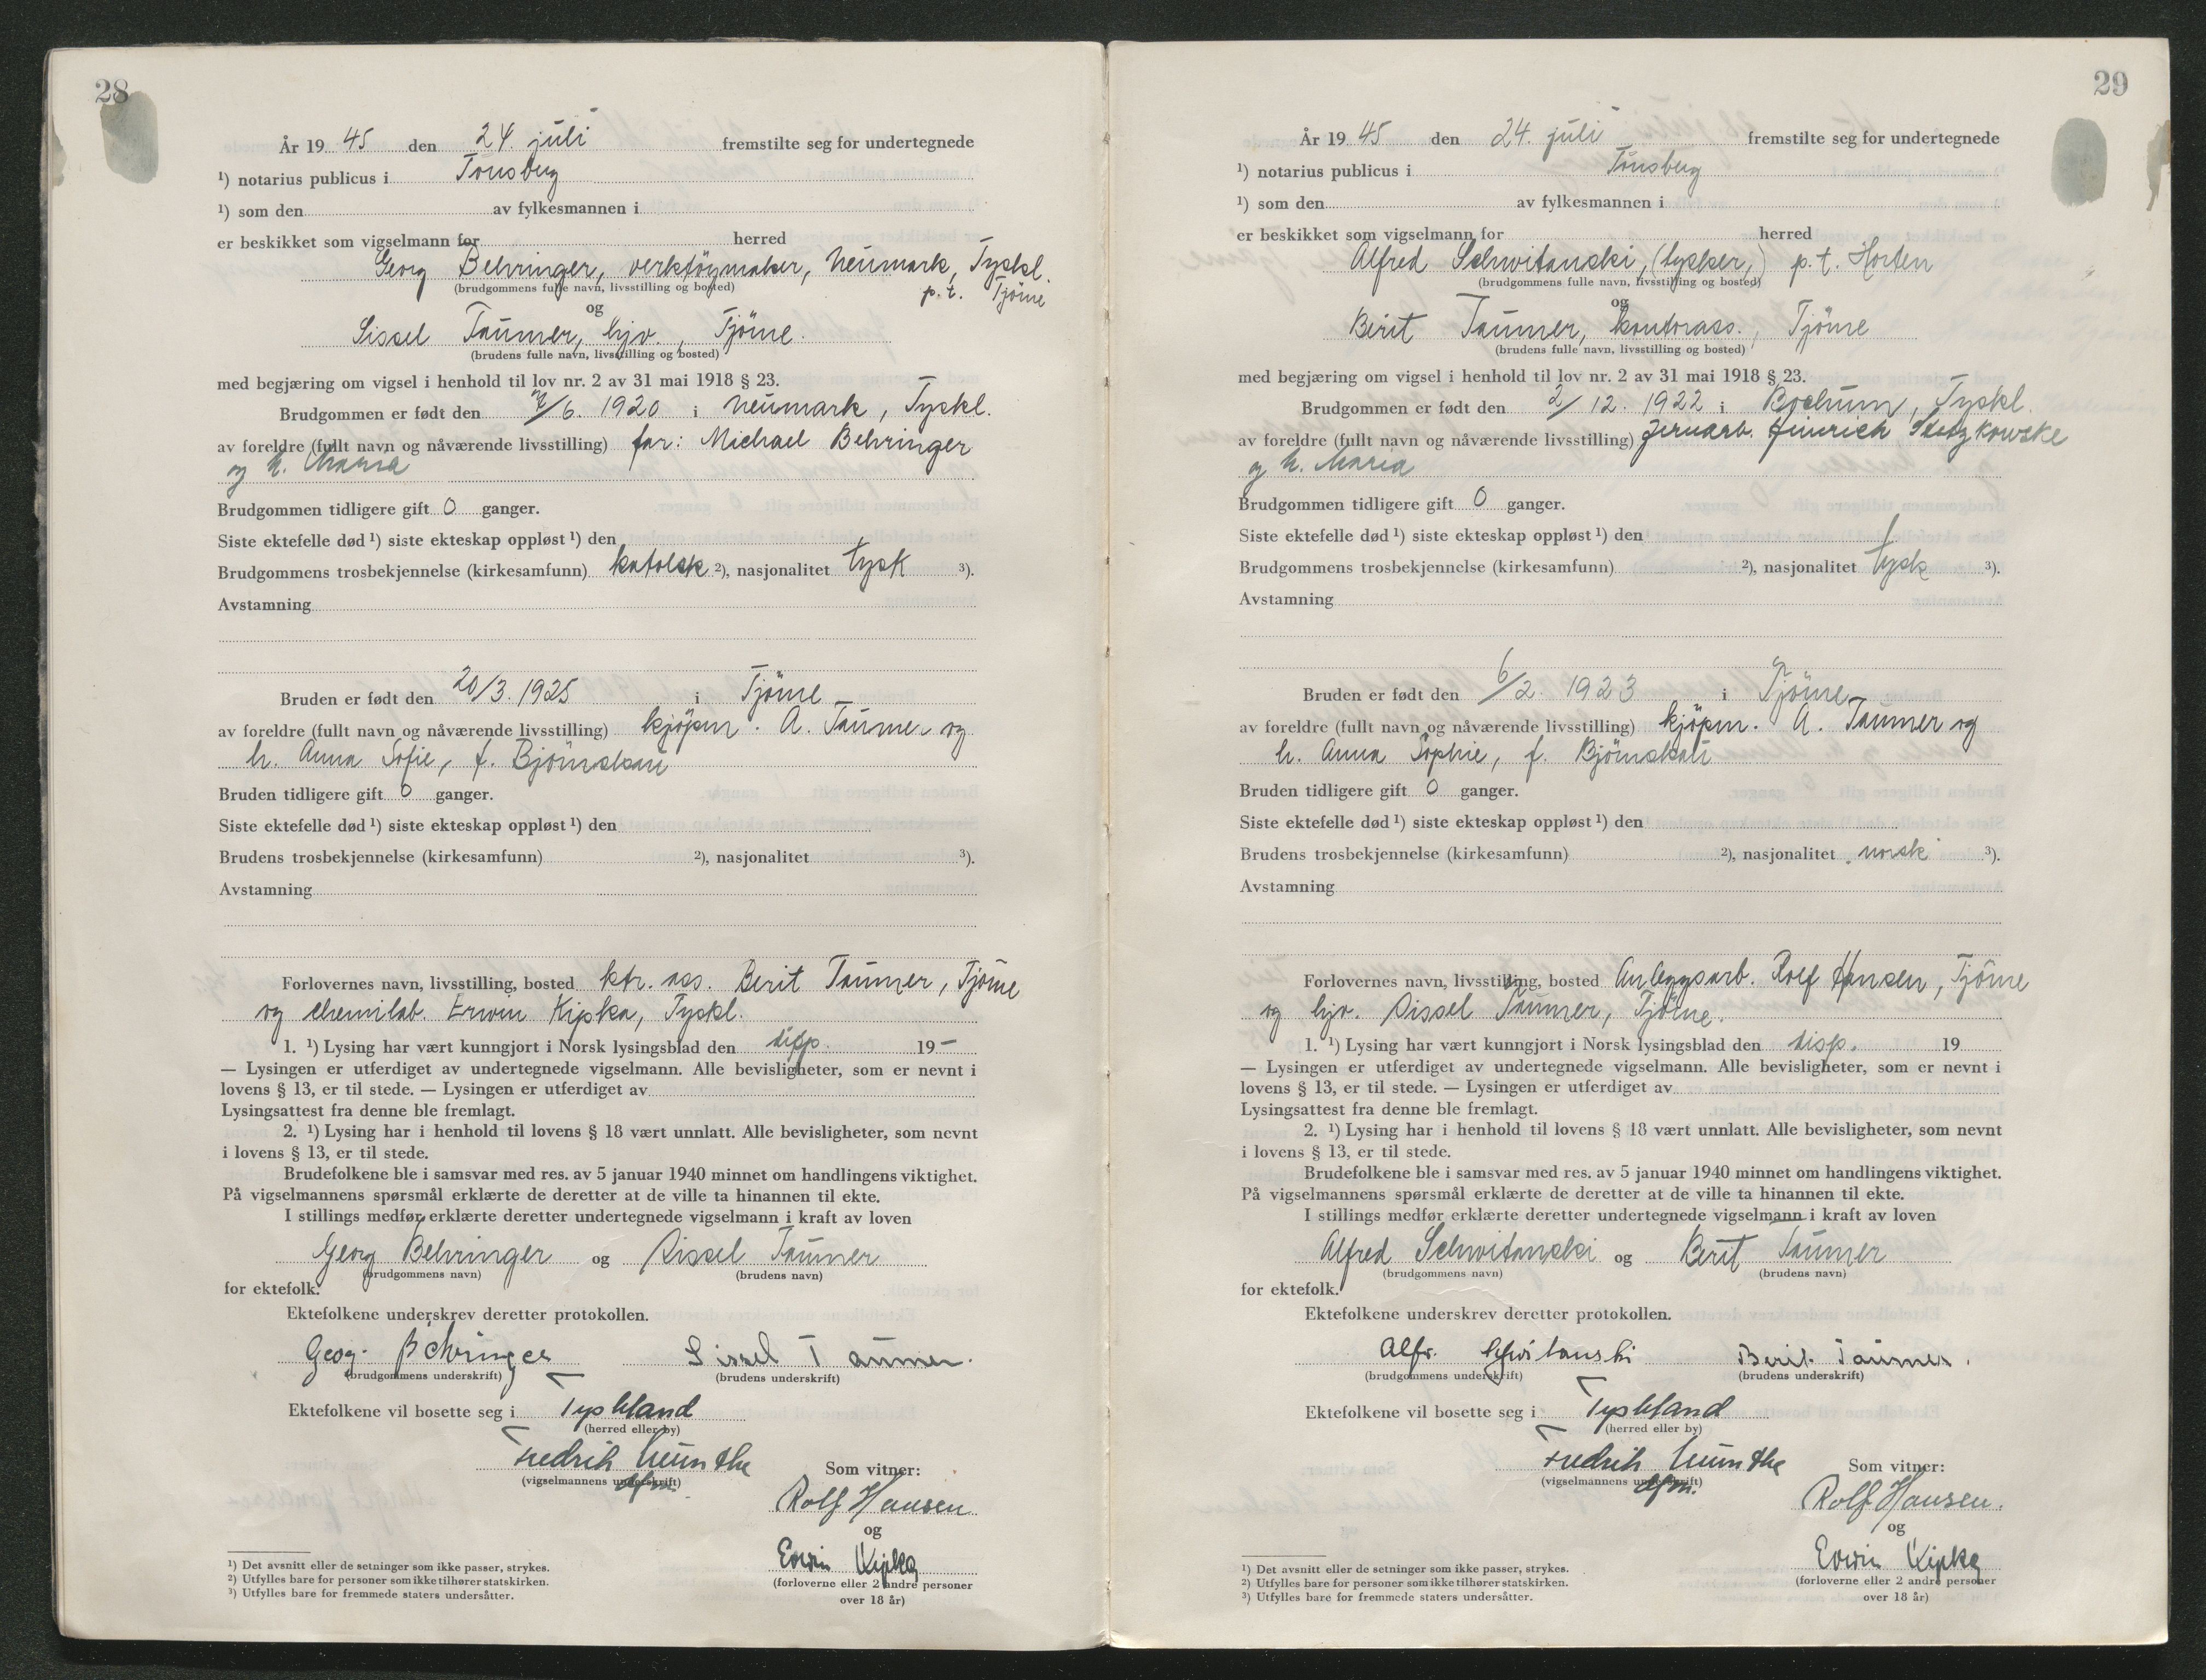 28
År 19 45 den 24. juli fremstilte seg for undertegnede
¹) notarius publicus i Tönsberg
¹) som den av fylkesmannen i
er beskikket som vigselmann for herred
Georg Behringer, verktöymaker, Neumark, Tyskl.
(brudgommens fulle navn, livsstilling og bosted) p. t. Tjöme
og
Sissel Taumer, hjv., Tjöme.
(brudens fulle navn, livsstilling og bosted)
med begjæring om vigsel i henhold til lov nr. 2 av 31 mai 1918 § 23.
Brudgommen er født den /6. 1920 i Neumark, Tyskl.
av foreldre (fullt navn og nåværende livsstilling) far: Michael Behringer
og h. Maria
Brudgommen tidligere gift 0 ganger.
Siste ektefelle død ¹) siste ekteskap oppløst ¹) den
Brudgommens trosbekjennelse (kirkesamfunn) katolsk ²), nasjonalitet tysk ³).
Avstamning
Bruden er født den 20/3. 1925 i Tjöme
av foreldre (fullt navn og nåværende livsstilling) kjöpm. A. Taumer og
h. Anna Sofie, f. Björnskau
Bruden tidligere gift 0 ganger.
Siste ektefelle død ¹) siste ekteskap oppløst ¹) den
Brudens trosbekjennelse (kirkesamfunn) ²), nasjonalitet ³).
Avstamning
Forlovernes navn, livsstilling, bosted ktr. ass. Berit Taumer, Tjöme
og chemilab. Erwin Kipka, Tyskl.
1. ¹) Lysing har vært kunngjort i Norsk lysingsblad den disp. 19 –
— Lysingen er utferdiget av undertegnede vigselmann. Alle bevisligheter, som er nevnt i
lovens § 13, er til stede. — Lysingen er utferdiget av
Lysingsattest fra denne ble fremlagt.
2. ¹) Lysing har i henhold til lovens § 18 vært unnlatt. Alle bevisligheter, som nevnt
i lovens § 13, er til stede.
Brudefolkene ble i samsvar med res. av 5 januar 1940 minnet om handlingens viktighet.
På vigselmannens spørsmål erklærte de deretter at de ville ta hinannen til ekte.
I stillings medfør erklærte deretter undertegnede vigselmann i kraft av loven
Georg Behringer og Sissel Taumer
(brudgommens navn) (brudens navn)
for ektefolk.
Ektefolkene underskrev deretter protokollen.
Georg Behringer Sissel Taumer.
(brudgommens underskrift) (brudens underskrift)
Ektefolkene vil bosette seg i Tyskland
(herred eller by)
Fredrik Munthe
(vigselmannens underskrift)
Som vitner:
Rolf Hansen
og
Erwin Kipka
(forloverne eller 2 andre personer
over 18 år)
¹) Det avsnitt eller de setninger som ikke passer, strykes.
²) Utfylles bare for personer som ikke tilhører statskirken.
³) Utfylles bare for fremmede staters undersåtter.
29
År 19 45 den 24. juli fremstilte seg for undertegnede
¹) notarius publicus i Tönsberg
¹) som den av fylkesmannen i
er beskikket som vigselmann for herred
Alfred Schwitanski, (tysker,) p. t. Horten
(brudgommens fulle navn, livsstilling og bosted)
og
Berit Taumer, kontorass., Tjöme
(brudens fulle navn, livsstilling og bosted)
med begjæring om vigsel i henhold til lov nr. 2 av 31 mai 1918 § 23.
Brudgommen er født den 2/12. 1922 i Bochum, Tyskl.
av foreldre (fullt navn og nåværende livsstilling) jernarb. Heinrich
og h. Maria
Brudgommen tidligere gift 0 ganger.
Siste ektefelle død ¹) siste ekteskap oppløst ¹) den
Brudgommens trosbekjennelse (kirkesamfunn) ²), nasjonalitet tysk ³).
Avstamning
Bruden er født den 6/2. 1923 i Tjöme
av foreldre (fullt navn og nåværende livsstilling) kjöpm. A. Taumer og
h. Anna Sophie, f. Björnskau
Bruden tidligere gift 0 ganger.
Siste ektefelle død ¹) siste ekteskap oppløst ¹) den
Brudens trosbekjennelse (kirkesamfunn) ²), nasjonalitet norsk ³).
Avstamning
Forlovernes navn, livsstilling, bosted Anleggsarb. Rolf Hansen, Tjöme
og hjv. Sissel Taumer, Tjöme.
1. ¹) Lysing har vært kunngjort i Norsk lysingsblad den disp. 19
— Lysingen er utferdiget av undertegnede vigselmann. Alle bevisligheter, som er nevnt i
lovens § 13, er til stede. — Lysingen er utferdiget av
Lysingsattest fra denne ble fremlagt.
2. ¹) Lysing har i henhold til lovens § 18 vært unnlatt. Alle bevisligheter, som nevnt
i lovens § 13, er til stede.
Brudefolkene ble i samsvar med res. av 5 januar 1940 minnet om handlingens viktighet.
På vigselmannens spørsmål erklærte de deretter at de ville ta hinannen til ekte.
I stillings medfør erklærte deretter undertegnede vigselmann i kraft av loven
Alfred Schwitanski og Berit Taumer
(brudgommens navn) (brudens navn)
for ektefolk.
Ektefolkene underskrev deretter protokollen.
Alfr. Schwitanski Berit Taumer.
(brudgommens underskrift) (brudens underskrift)
Ektefolkene vil bosette seg i Tyskland
(herred eller by)
Fredrik Munthe
(vigselmannens underskrift)
Som vitner:
Rolf Hansen.
og
Erwin Kipka
(forloverne eller 2 andre personer
over 18 år)
¹) Det avsnitt eller de setninger som ikke passer, strykes.
²) Utfylles bare for personer som ikke tilhører statskirken.
³) Utfylles bare for fremmede staters undersåtter.